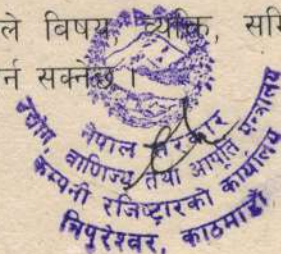 ले विषय व्यक्ति, समि
र्न सक्नेछ ।
नेपाल सरकार
उद्योग, वाणिज्य तथा आपूर्ति मन्त्रालय
कम्पनी रजिष्ट्रारको कार्यालय
त्रिपुरेश्वर, काठमाडौं